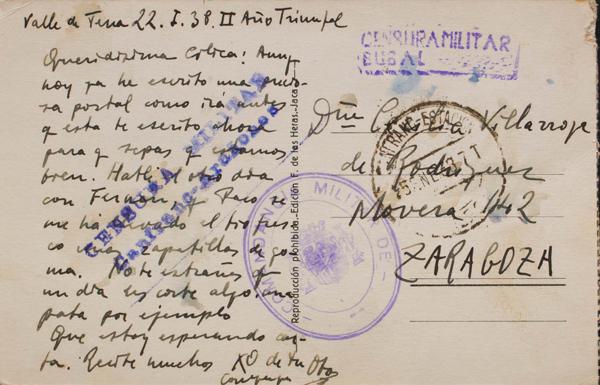 Valle de Tena 22. I. 38. II Año Triunfal
Queridisima Cólica: Aunq
hoy ya he escrito una
postal como irá antes
q esta te escrito ahora
para q sepas q estamos
bien. Hablé el otro dia
con Fernan, y Paco se
me ha llevado el
co unas zapatillas de go
ma. No te estrañes q
un dia os corte algo. una
pata por ejemplo
Que estoy esperando car
ta. Recibe muchos de tu
CENSURA MILITAR
BUBAL
CENSURA MILITAR
COMANDANCIA MILITAR DE
Reproducción prohibida.-Edición F. de las Heras.-Jaca
Dña Villarroya
de Rodriguez
Movera 42
ZARAGOZA